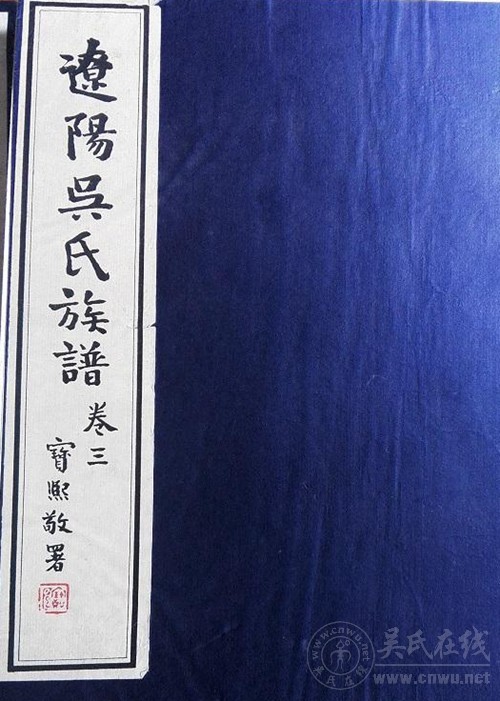 遼陽吳氏族譜
卷三
寶熙敬署
吴氏在线
www.cnwu.net